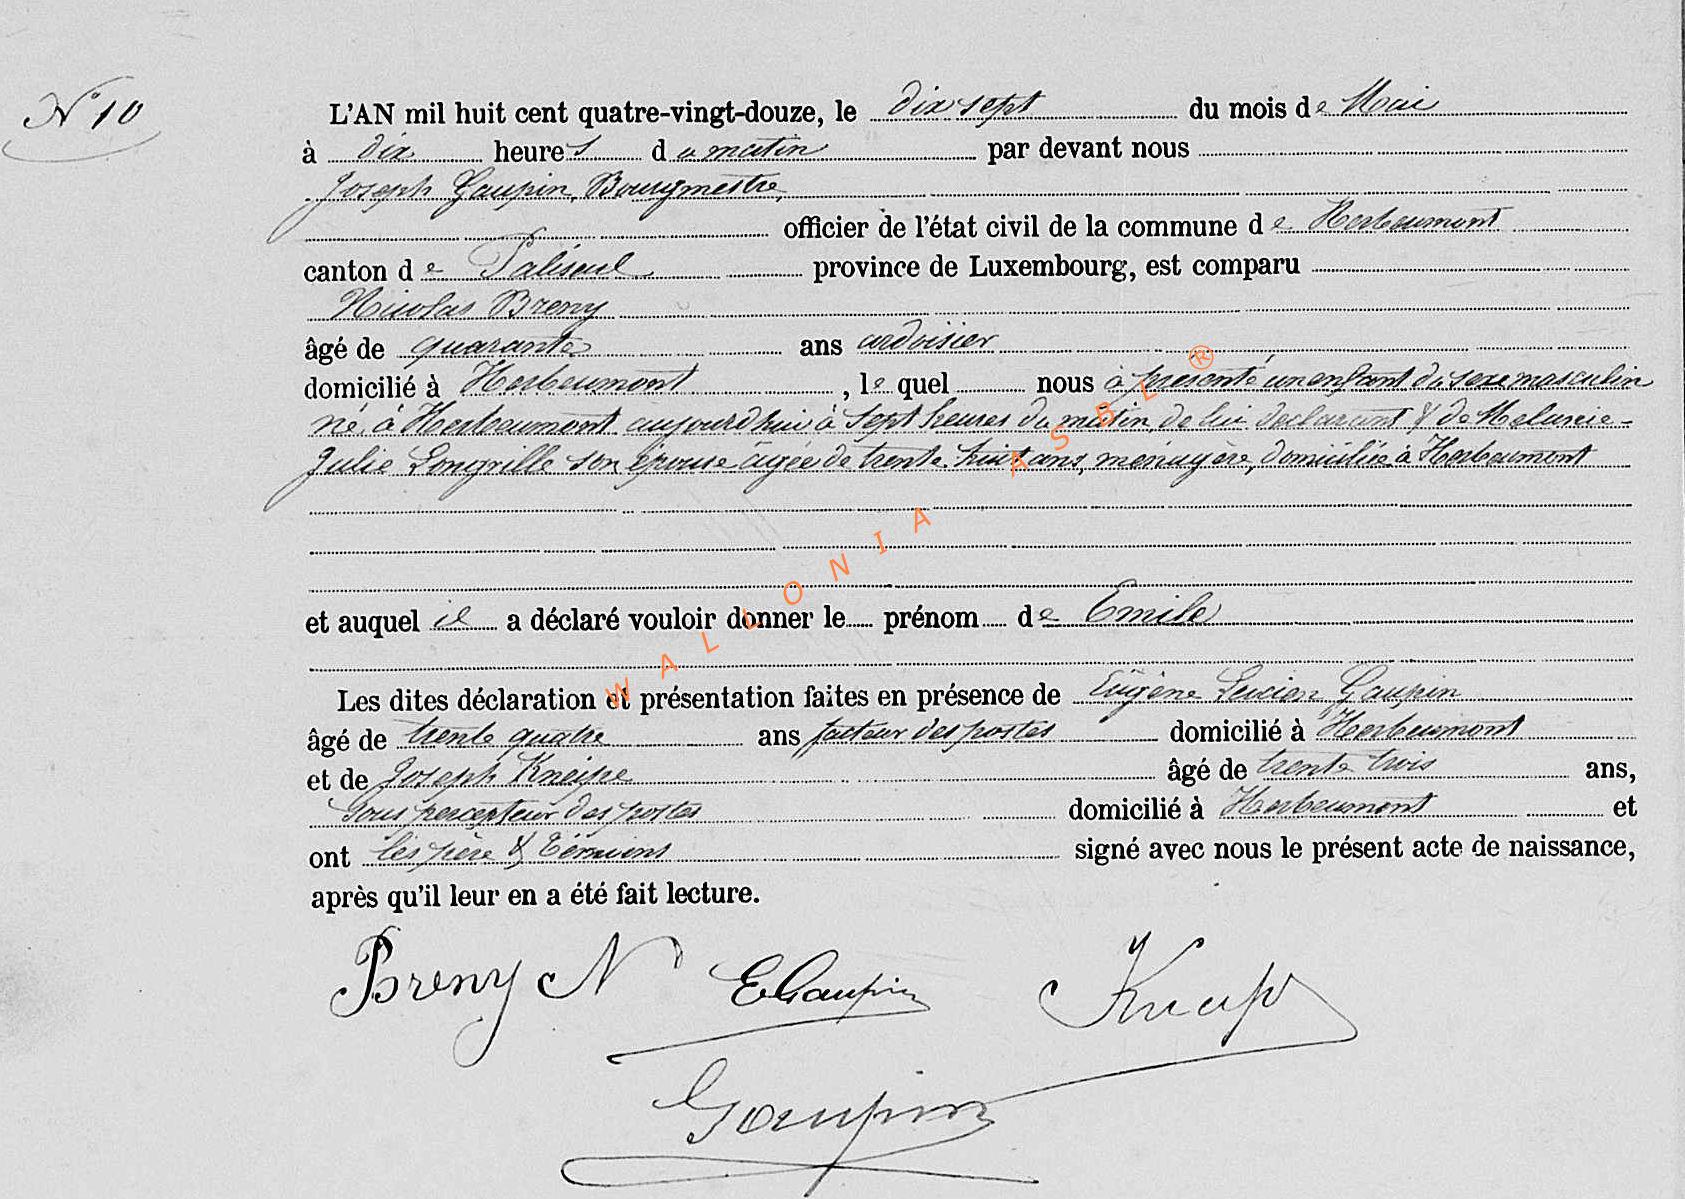 N° 10
L'AN mil huit cent quatre-vingt-douze, le dix sept du mois de Mai
à dix heures du matin par devant nous
Joseph Gaupin, Bourgmestre,
officier de l'état civil de la commune de Herbeumont
canton de Paliseul province de Luxembourg, est comparu
Nicolas Breny
âgé de quarante ans ardoisier
domicilié à Herbeumont, le quel nous à présenté un enfant du sexe masculin
né à Herbeumont aujourd'hui à sept heures du matin, de lui déclarant & de Melanie-
Julie Longville son épouse âgée de trente-huit ans, ménagère, domiciliée à Herbeumont
et auquel il a déclaré vouloir donner le prénom de Emile
Les dites déclaration et présentation faites en présence de Eugène Lucien Gaupin
âgé de trente quatre ans facteur des postes domicilié à Herbeumont
et de Joseph Kneipe âgé de trente trois ans,
sous percepteur des postes domicilié à Herbeumont et
ont les père & témoins signé avec nous le présent acte de naissance,
après qu'il leur en a été fait lecture.
Breny N EGaupin
Gaupin
WALLONIA ASBL ®